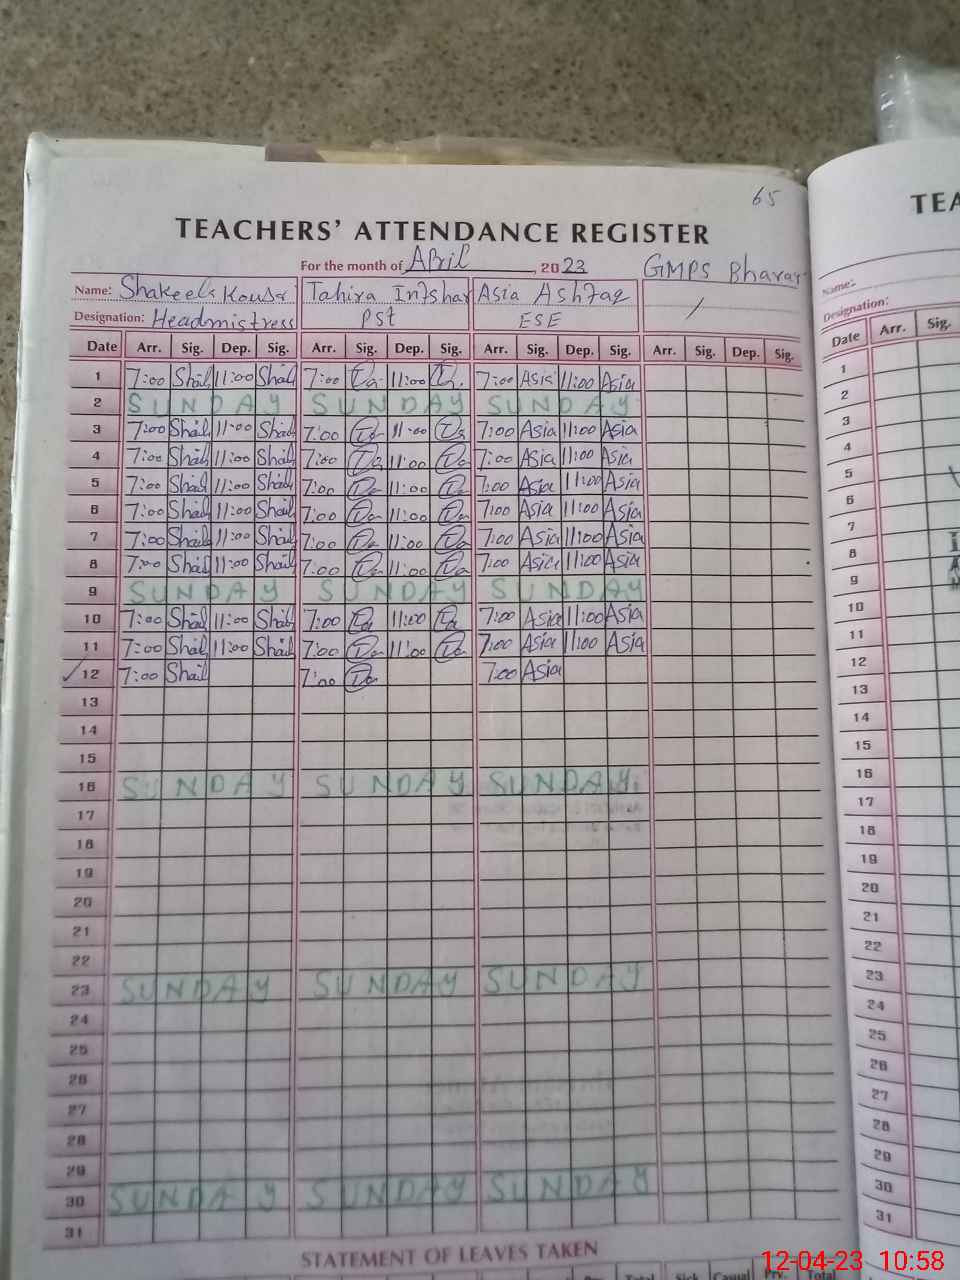 65
TEACHERS' ATTENDANCE REGISTER
For the month of April, 2023 GMPS Bharar
Name: Shakeela Kousar Tahira Intshar Asia Ashfaq
Designation: Headmistress PST ESE
Date Arr. Sig. Dep. Sig. Arr. Sig. Dep. Sig. Arr. Sig. Dep. Sig. Arr. Sig. Dep. Sig.
1 7:00 Shail 11:00 Shail 7:00 11:00 7:00 Asia 11:00 Asia
2 SUNDAY SUNDAY SUNDAY
3 7:00 Shail 11:00 Shail 7:00 11:00 7:00 Asia 11:00 Asia
4 7:00 Shail 11:00 Shail 7:00 11:00 7:00 Asia 11:00 Asia
5 7:00 Shail 11:00 Shail 7:00 11:00 7:00 Asia 11:00 Asia
6 7:00 Shail 11:00 Shail 7:00 11:00 7:00 Asia 11:00 Asia
7 7:00 Shail 11:00 Shail 7:00 11:00 7:00 Asia 11:00 Asia
8 7:00 Shail 11:00 Shail 7:00 11:00 7:00 Asia 11:00 Asia
9 SUNDAY SUNDAY SUNDAY
10 7:00 Shail 11:00 Shail 7:00 11:00 7:00 Asia 11:00 Asia
11 7:00 Shail 11:00 Shail 7:00 11:00 7:00 Asia 11:00 Asia
12 7:00 Shail 7:00 7:00 Asia
13
14
15
16 SUNDAY SUNDAY SUNDAY
17
18
19
20
21
22
23 SUNDAY SUNDAY SUNDAY
24
25
26
27
28
29
30 SUNDAY SUNDAY SUNDAY
31
STATEMENT OF LEAVES TAKEN
Total Sick Casual Prv. Total
TEA
Name:
Designation:
Date Arr. Sig.
1
2
3
4
5
6
7
8
9
10
11
12
13
14
15
16
17
18
19
20
21
22
23
24
25
26
27
28
29
30
31
12-04-23 10:58